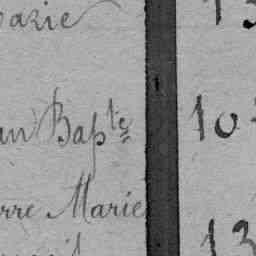 arie 13
an Bapte 10
rre Marie
13